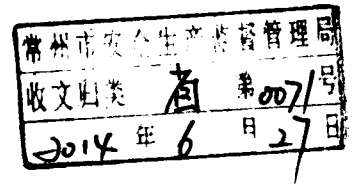 常州市安全生产监督管理局
收文归类 省 第0071号
2014年6月27日